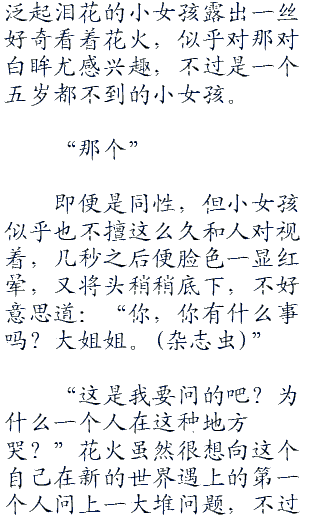 泛起泪花的小女孩露出一丝
好奇看着花火，似乎对那对
白眸尤感兴趣，不过是一个
五岁都不到的小女孩。
“那个”
即便是同性，但小女孩
似乎也不擅这么久和人对视
着，几秒之后便脸色一显红
晕，又将头稍稍底下，不好
意思道：“你，你有什么事
吗？大姐姐。(杂志虫)”
“这是我要问的吧？为
什么一个人在这种地方
哭？”花火虽然很想向这个
自己在新的世界遇上的第一
个人问上一大堆问题，不过